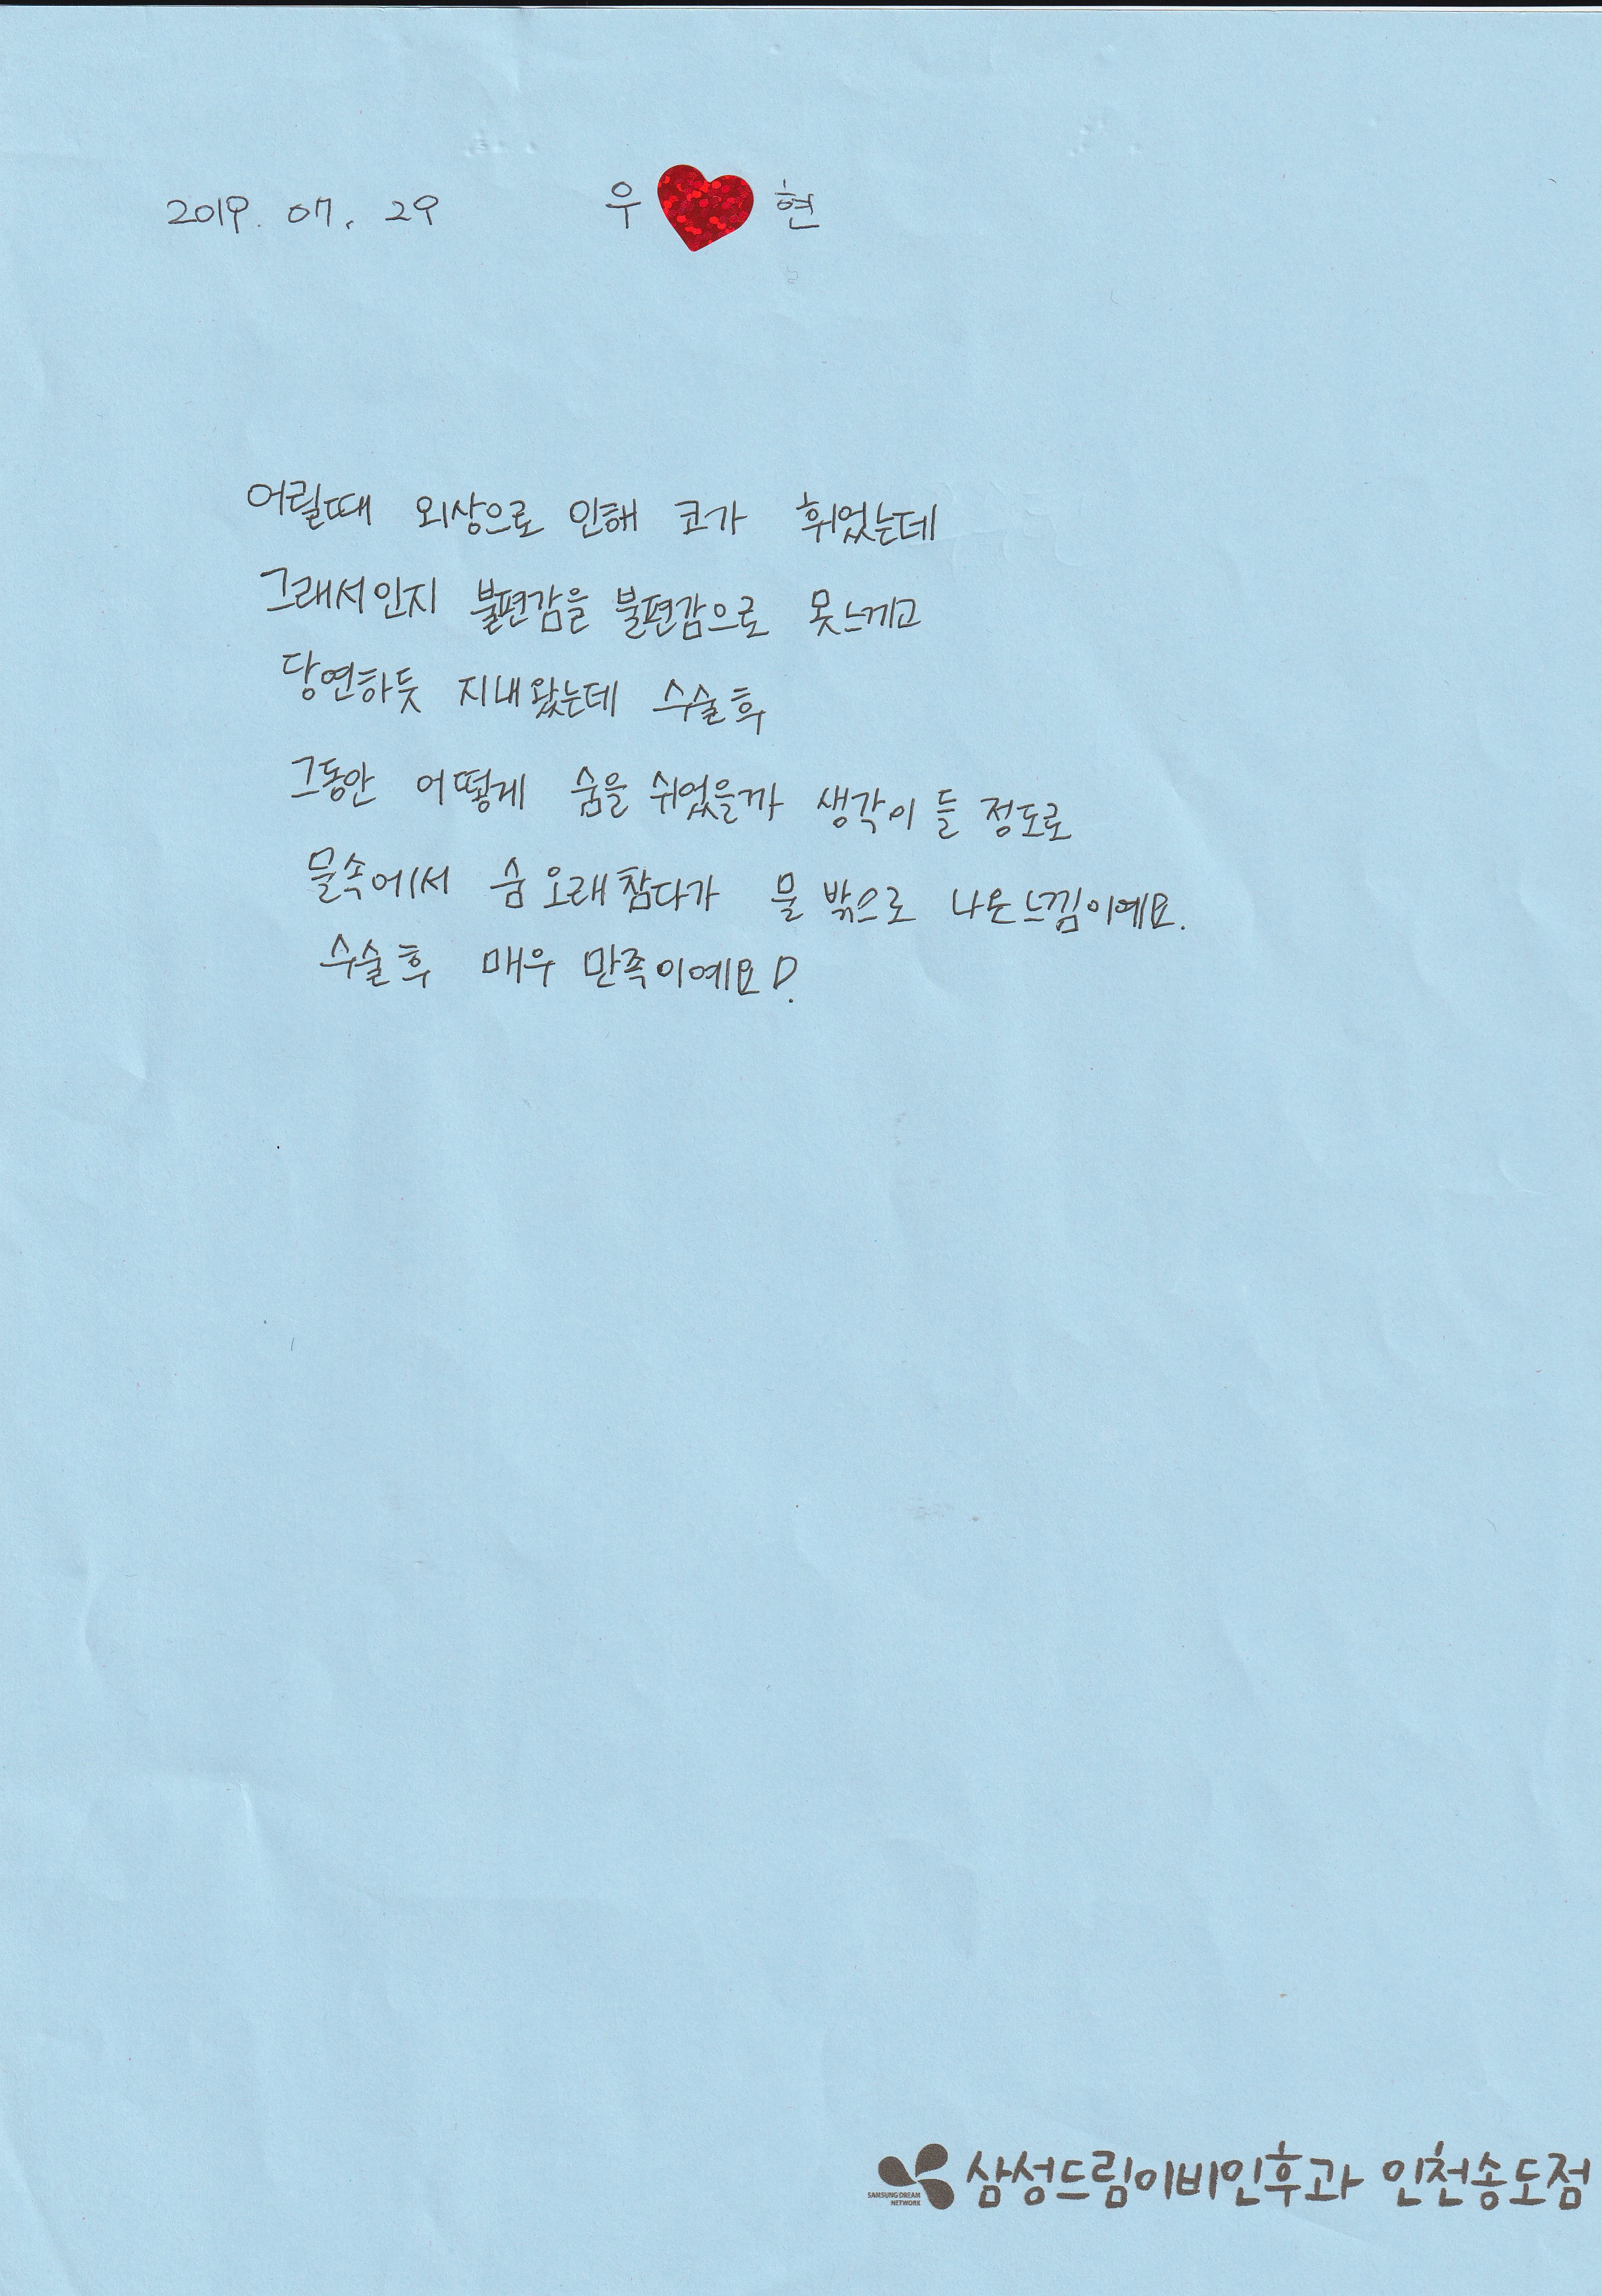 2019. 07. 29 우 현
어릴때 외상으로 인해 코가 휘었는데
그래서인지 불편감을 불편감으로 못느끼고
당연하듯 지내왔는데 수술후
그동안 어떻게 숨을 쉬었을까 생각이 들 정도로
물속에서 숨 오래참다가 물 밖으로 나온느낌이예요.
수술후 매우 만족이예요!
SAMSUNG DREAM
NETWORK
삼성드림이비인후과 인천송도점